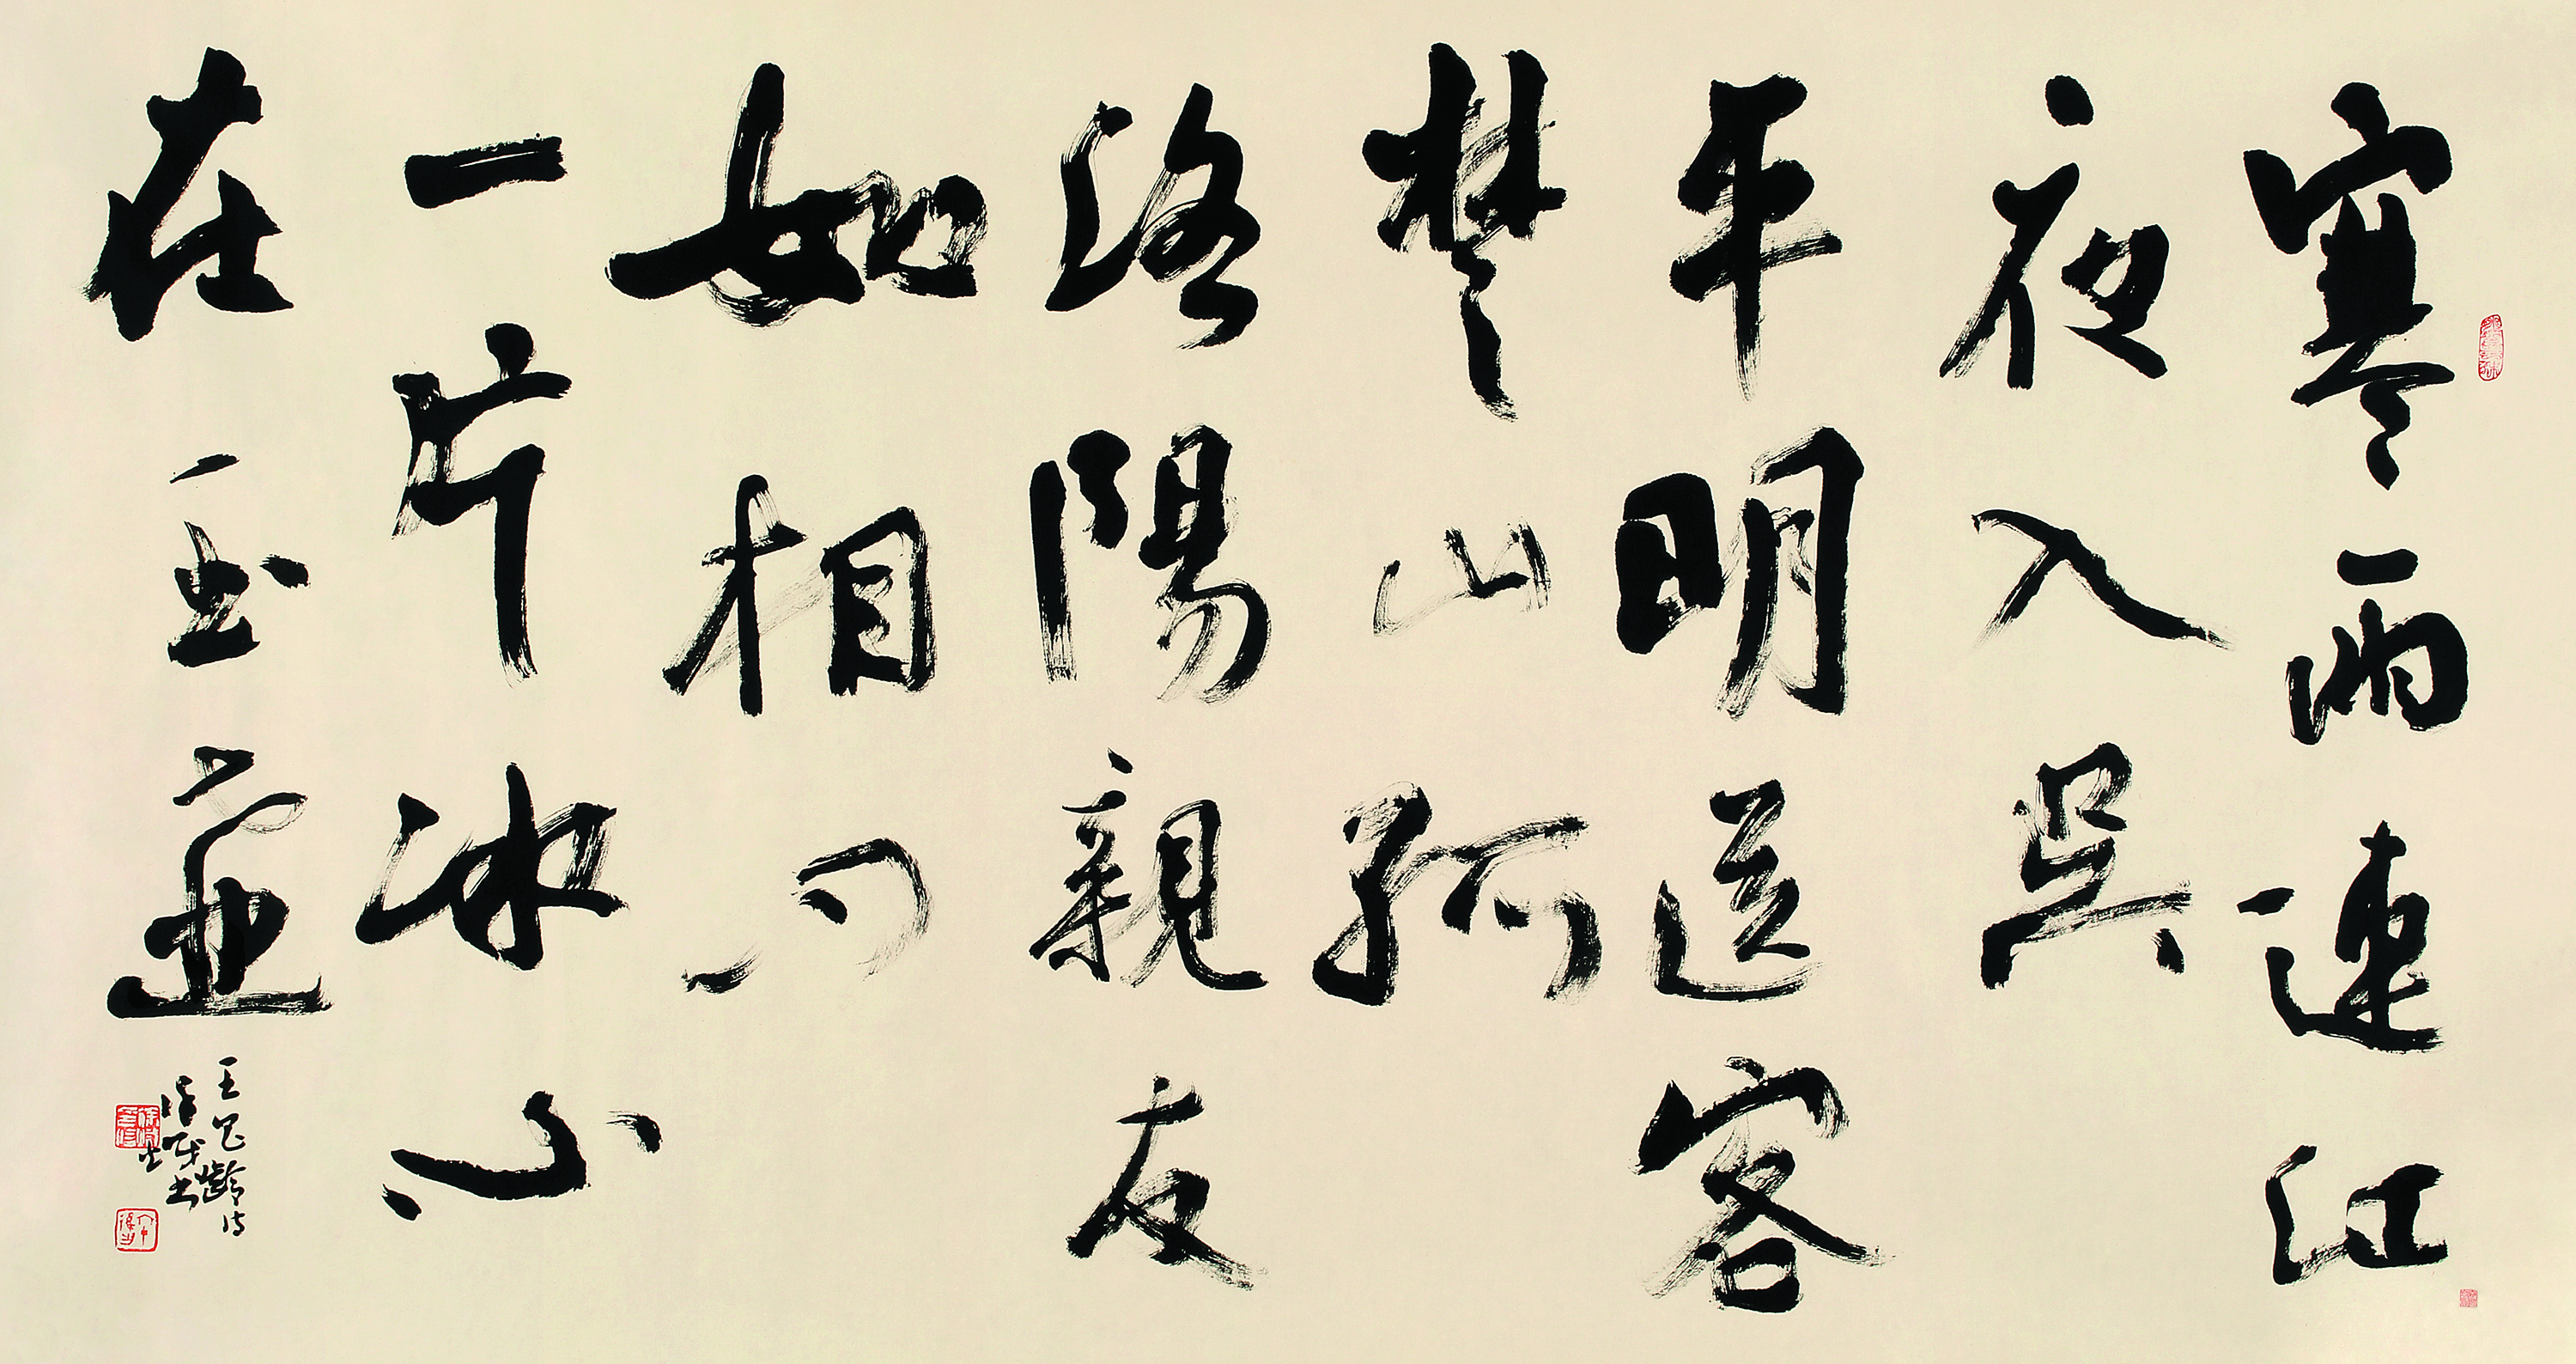 寒雨連江
夜入吳
平明送客
楚山孤
洛陽親友
如相問
一片冰心
在玉壺
王昌齡詩